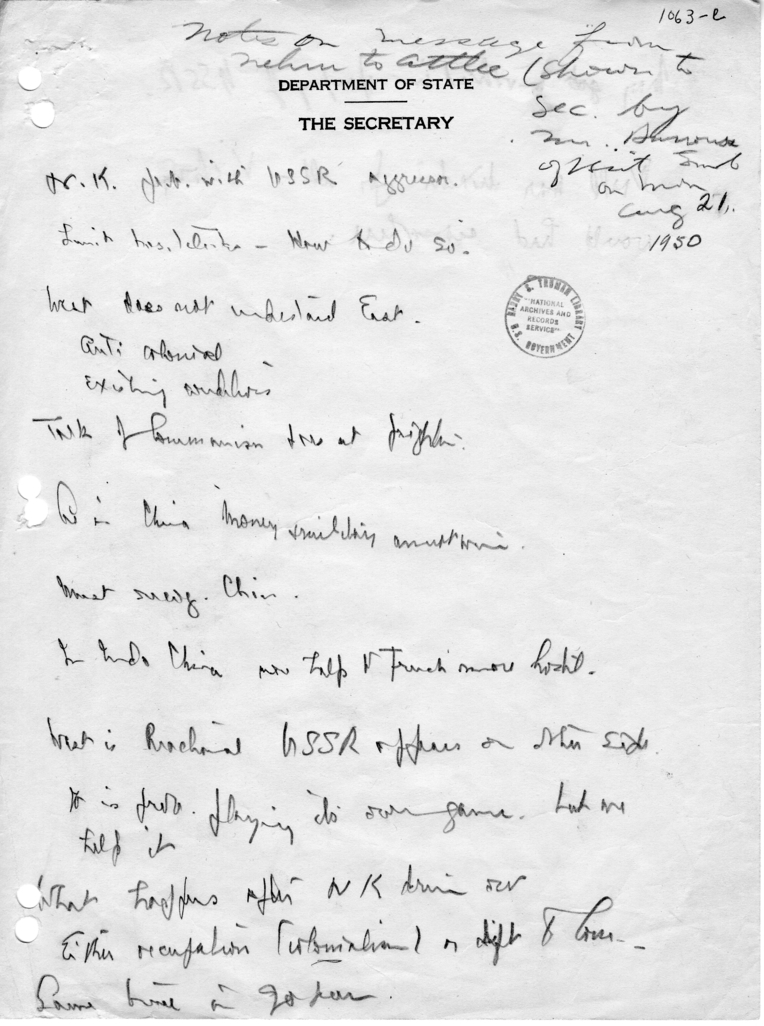 1063-2
Notes on message from
Nehru to Attlee (shown to
DEPARTMENT OF STATE
Sec. by
THE SECRETARY
Mr. Burrows
of Brit Emb
on Mon
Aug 21,
1950
N.K. prob. with USSR aggressor.
Limit hostilities – How to do so.
West does not understand East.
Anti colonial
Existing conditions
HARRY S. TRUMAN LIBRARY
"NATIONAL
ARCHIVES AND
RECORDS
SERVICE"
U.S. GOVERNMENT
Talk of Communism does not frighten.
As in China money & military
Must recog. China.
In Indo China our help to French more hostil.
West is Reactional USSR appears on other side.
It is prob. playing its own game. but we
help it
What happens after N K driven out
Either occupation (colonialism) or left to Com.
Same true in